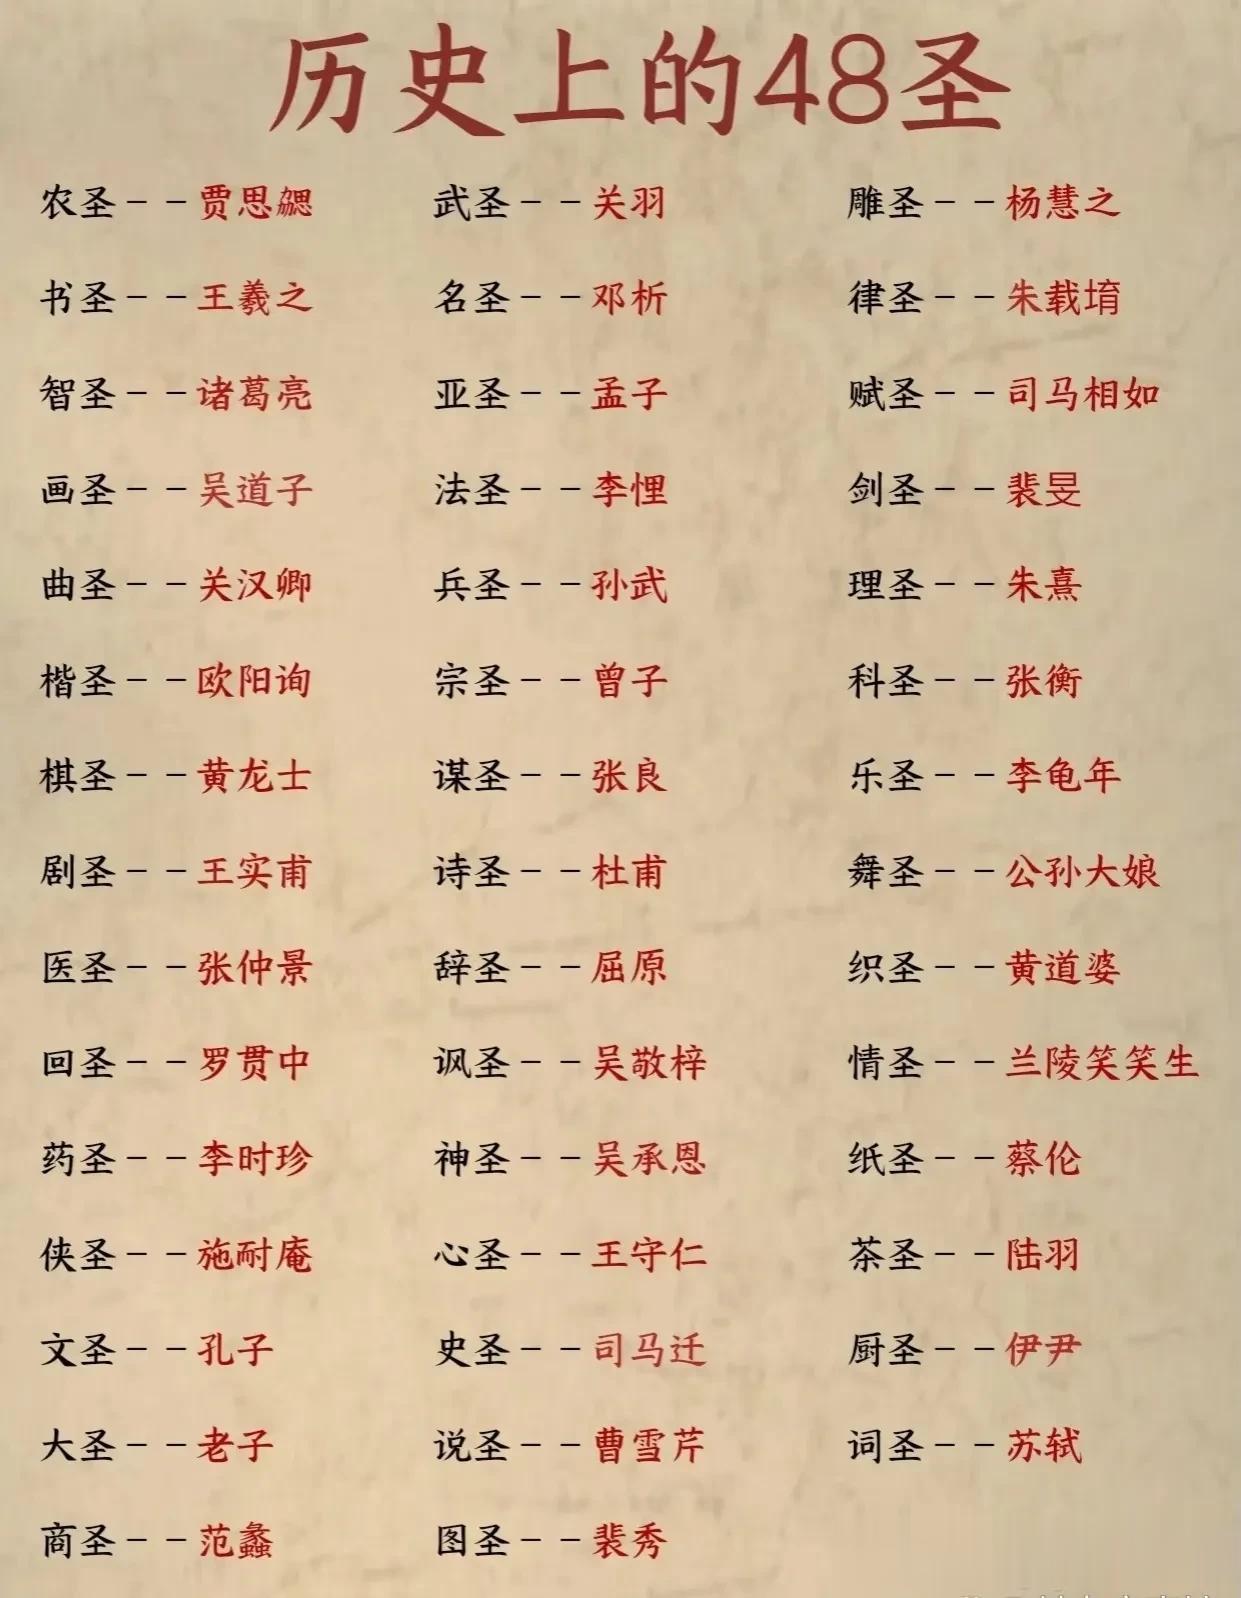 历史上的48圣
农圣--贾思勰 武圣--关羽 雕圣--杨慧之
书圣--王羲之 名圣--邓析 律圣--朱载堉
智圣--诸葛亮 亚圣--孟子 赋圣--司马相如
画圣--吴道子 法圣--李悝 剑圣--裴旻
曲圣--关汉卿 兵圣--孙武 理圣--朱熹
楷圣--欧阳询 宗圣--曾子 科圣--张衡
棋圣--黄龙士 谋圣--张良 乐圣--李龟年
剧圣--王实甫 诗圣--杜甫 舞圣--公孙大娘
医圣--张仲景 辞圣--屈原 织圣--黄道婆
回圣--罗贯中 讽圣--吴敬梓 情圣--兰陵笑笑生
药圣--李时珍 神圣--吴承恩 纸圣--蔡伦
侠圣--施耐庵 心圣--王守仁 茶圣--陆羽
文圣--孔子 史圣--司马迁 厨圣--伊尹
大圣--老子 说圣--曹雪芹 词圣--苏轼
商圣--范蠡 图圣--裴秀